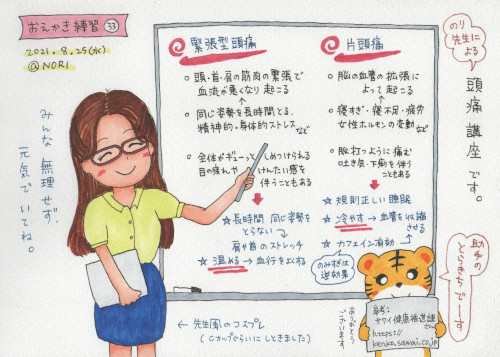 おえかき練習 33
2021.8.25(水)
@NORI
みんな無理せず、
元気でいてね。
緊張型頭痛
○ 頭・首・肩の筋肉の緊張で
血流が悪くなり起こる
↑
○ 同じ姿勢を長時間とる、
精神的・身体的ストレスなど
○ 全体がギューッとしめつけられる
目の疲れや けんたい感を
伴うこともある
↓
☆ 長時間 同じ姿勢を
とらない
肩や首のストレッチ
☆ 温める → 血行をよくする
片頭痛
○ 脳の血管の拡張に
よって起こる
↑
○ 寝すぎ・寝不足・疲労
女性ホルモンの変動など
○ 脈打つように痛む
吐き気・下痢を伴う
こともある
↓
☆ 規則正しい睡眠
☆ 冷やす → 血管を収縮
させる
☆ カフェイン有効
のみすぎは
逆効果
のり先生による
頭痛講座です。
助手の
とらきちでーす
参考:
サワイ健康推進課
さん
https://
kenko.sawai.co.jp
ありがとう
ございます。
← 先生風のコスプレ
(Cカップぐらいにしときました)